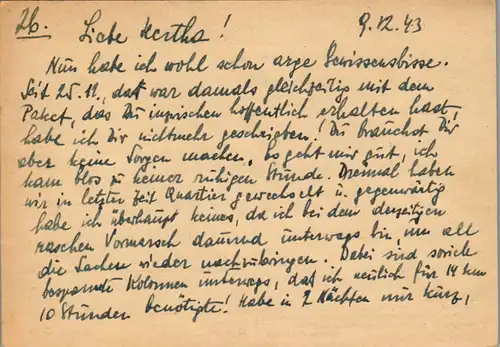 26. Liebe Hertha! 9.12.43
Nun habe ich wohl schon arge Gewissensbisse.
Seit 25.11., das war damals gleichzeitig mit dem
Paket, das Du inzwischen hoffentlich erhalten hast,
habe ich Dir nicht mehr geschrieben! Du brauchst Dir
aber keine Sorgen machen, es geht mir gut, ich
kam blos zu keiner ruhigen Stunde. Dreimal haben
wir in letzter Zeit Quartier gewechselt u. gegenwärtig
habe ich überhaupt keines, da ich bei dem derzeitigen
raschen Vormarsch dauernd unterwegs bin um all
die Sachen wieder nachzubringen. Dabei sind soviele
bespannte Kolonnen unterwegs, daß ich neulich für 14 km
10 Stunden benötigte! Habe in 2 Nächten nur kurz,